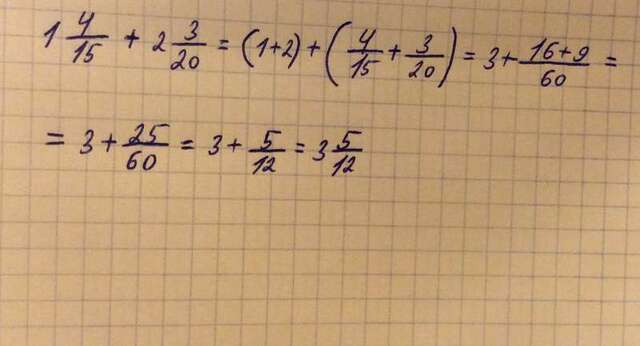 1 4/15 + 2 3/20 = (1+2) + (4/15 + 3/20) = 3 + (16+9)/60 =
= 3 + 25/60 = 3 + 5/12 = 3 5/12